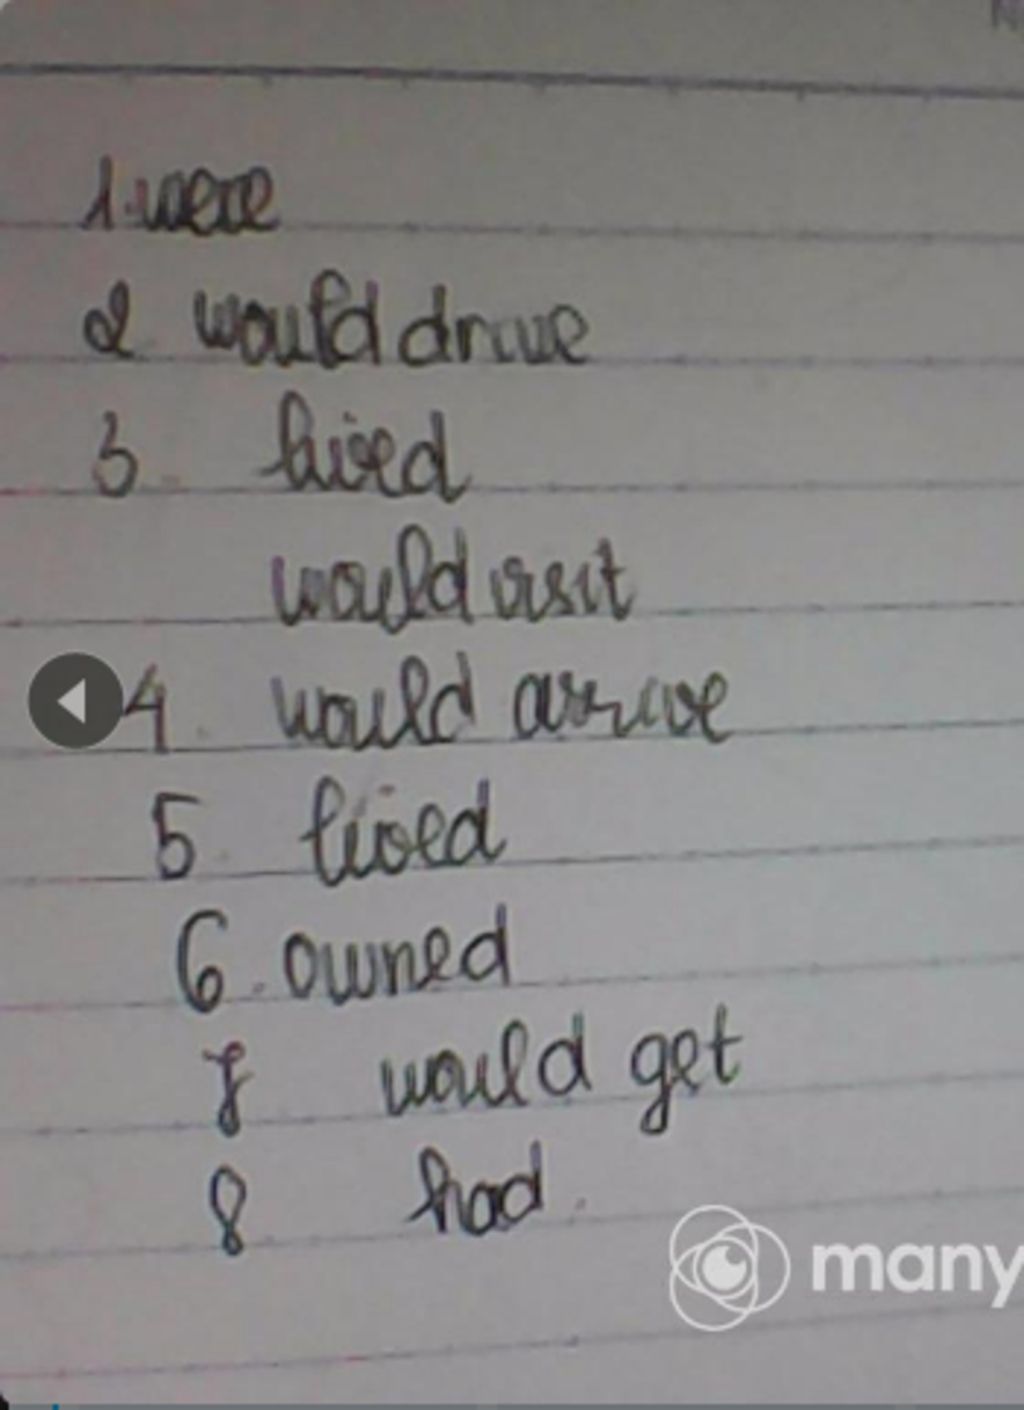 1. were
2 would drive
3. lived
would visit
4. would arrive
5. lived
6. owned
7 would get
8 had.
many